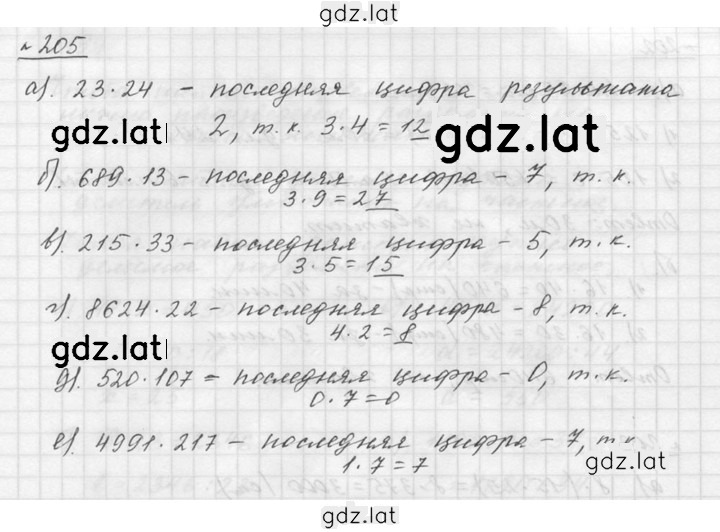 gdz.lat
№ 205
а). 23·24 – последняя цифра результата
2, т.к. 3·4=12
gdz.lat
gdz.lat
б). 689·13 – последняя цифра – 7, т.к.
3·9=27
в). 215·33 – последняя цифра – 5, т.к.
3·5=15
г). 8624·22 – последняя цифра – 8, т.к.
4·2=8
gdz.lat
д). 520·107 = последняя цифра – 0, т.к.
0·7=0
е). 4991·217 – последняя цифра – 7, т.к
1·7=7
gdz.lat
gdz.lat